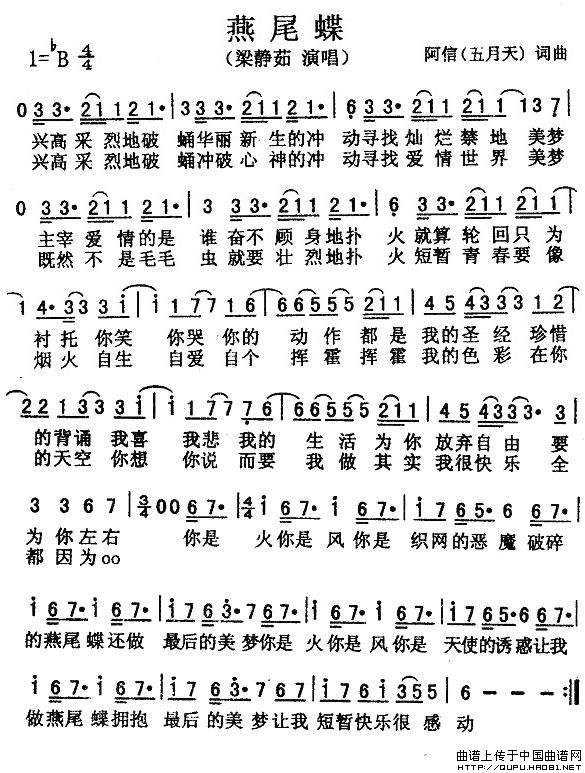 燕尾蝶
(梁静茹 演唱)
1=♭B 4/4
阿信(五月天) 词曲
0 3 3· 2 1 1 1 2 1·| 3 3 3· 2 1 1 1 2 1·| 6 3 3· 2 1 1 1 2 1 1 3 7|
兴高 采 烈地破 蛹华丽 新 生的冲 动寻找 灿 烂 禁 地 美梦
兴高 采 烈地破 蛹冲破 心 神的冲 动寻找 爱 情 世 界 美梦
0 3 3· 2 1 1 2 1·| 3 3 3· 2 1 1 2 1·| 6 3 3· 2 1 1 2 1·|
主宰 爱 情的是 谁奋不 顾 身地扑 火就算 轮 回只为
既然 不 是毛毛 虫就要 壮 烈地扑 火短暂 青 春要像
1 4· 3 3 3 3 i| i 1 7 7 7 1 6| 6 6 6 5 5 5 2 1 1| 4 5 4 3 3 3 1 2|
衬托 你笑 你哭 你的 动作 都是 我的圣经 珍惜
烟火 自生 自爱 自个 挥霍 挥霍 我的色彩 在你
2 2 1 3 3 3 i| i 1 7 7 7 6| 6 6 6 5 5 5 2 1 1| 4 5 4 3 3 3· 3|
的背诵 我喜 我悲 我的 生活 为你 放弃自由 要
的天空 你想 你说 而要 我做 其实 我很快乐 全
3 3 6 7|3/4 0 0 6 7·|4/4 i 6 7· i 6 7·| i 7 6 5· 6 6 7·|
为你左右 你是 火你是 风你是 织网的恶 魔破碎
都因为oo
i 6 7· i 6 7·| i 7 6 3· 7 6 7·| i 6 7· i 6 7·| i 7 6 5· 6 6 7·|
的燕尾 蝶还做 最后的美 梦你是 火你是 风你是 天使的诱 惑让我
i 6 7· i 6 7·| i 7 6 3· 7 6 7·| i 7 6 5· i 3 5 5| 6 - - -|
做燕尾 蝶拥抱 最后的美 梦让我 短暂快乐 很感 动
曲谱上传于中国曲谱网
HTTP://QUPU.HAO81.NET